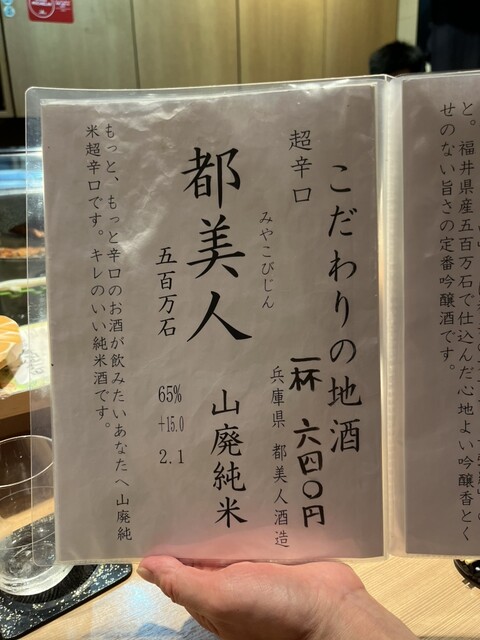 と。福井県産五百万石で仕込んだ心地よい吟醸香とく
せのない旨さの定番吟醸酒です。
こだわりの地酒
超辛口
一杯 六四〇円
みやこびじん
兵庫県 都美人酒造
都美人
山廃純米
五百万石
65%
+15.0
2.1
もっと、もっと辛口のお酒が飲みたいあなたへ山廃純
米超辛口です。キレのいい純米酒です。